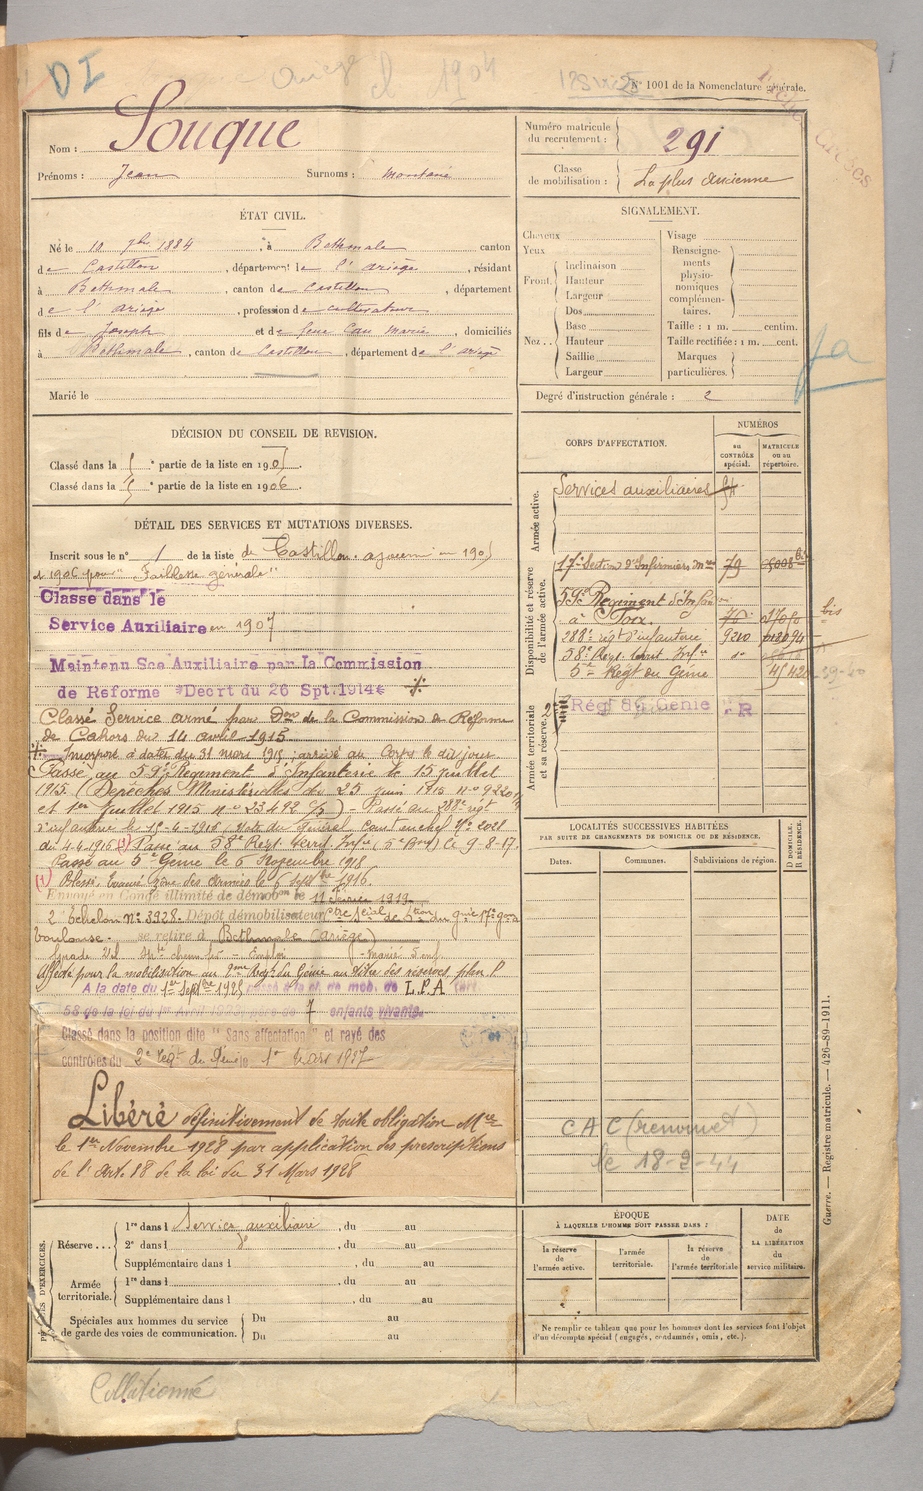 DI
Ariège
d 1904
N° 1001 de la Nomenclature générale.
Nom : Souque
Prénoms : Jean Surnoms : Montané
Numéro matricule du recrutement : 291
Classe de mobilisation : La plus Ancienne
ÉTAT CIVIL.
Né le 10 9bre 1884, à Bethmale canton
de Castillon, département de l'Ariège, résidant
à Bethmale, canton de Castillon, département
de l'Ariège, profession de cultivateur
fils de Joseph et de feue Cau Marie, domiciliés
à Bethmale, canton de Castillon, département de l'Ariège
Marié le
SIGNALEMENT.
Cheveux
Yeux
Front. Inclinaison
Hauteur
Largeur
Nez.. Dos
Base
Hauteur
Saillie
Largeur
Visage
Renseignements physionomiques complémentaires.
Taille : 1 m. centim.
Taille rectifiée : 1 m. cent.
Marques particulières.
Degré d'instruction générale : 2
fa
DÉCISION DU CONSEIL DE REVISION.
Classé dans la 5e partie de la liste en 1905.
Classé dans la 5e partie de la liste en 1906
DÉTAIL DES SERVICES ET MUTATIONS DIVERSES.
Inscrit sous le n° 1 de la liste de Castillon. ajourné en 1905
et 1906 pour "Faiblesse générale"
Classé dans le
Service Auxiliaire en 1907
Maintenu Sce Auxiliaire par la Commission
de Reforme Décrt du 26 Spt. 1914
Classé Service armé par Don de la Commission de Réforme
de Cahors du 14 avril 1915
Incorporé à dater du 31 mars 1915, arrivé au Corps le dit jour
Passé au 59e Régiment d'Infanterie le 15 juillet
1915 (Depêches Ministérielles du 25 juin 1915 n° 9220
et 1er Juillet 1915 n° 23492 C/3) - Passé au 288e régt
d'infanterie le 15-4-1916, Note du Général Comt en chef N° 2021
du 4-4-1916 (1) Passé au 58e Régt territ. Infie le 9-8-17.
Passé au 5e Génie le 6 Novembre 1918
(1) Blessé, Evacué zône des armées le 6 septbre 1916.
Envoyé en Congé illimité de démobon le 11 Février 1919
2 échelon n° 3928. Dépôt démobilisateur
Toulouse. se retire à Bethmale (Ariège)
Affecté pour la mobilisation au 2me Régt du Génie au titre des réserves, plan P
A la date du 1er Septbre 1925 passé à la cl. de mob. de L.P.A (art.
58 de la loi du 1er Avril 1923, père de 7 enfants vivants.
Classé dans la position dite "Sans affectation" et rayé des
contrôles du 2e Régt du Génie le 1er Mars 1927
Libéré définitivement de toute obligation Mre
le 1er Novembre 1928 par application des prescriptions
de l'Art. 98 de la loi du 31 Mars 1928
CORPS D'AFFECTATION.
NUMÉROS
au CONTRÔLE spécial.
MATRICULE ou au répertoire.
Armée active.
Services auxiliaires 94
Disponibilité et réserve de l'armée active.
17e Section d'Infirmiers mres 79
59e Régiment d'Infrie
à Foix. bis
288e régt d'infanterie 9210
58e Régt territ. Infie
5e Régt du Génie
Armée territoriale et sa réserve.
2e Régt 86 Génie R
LOCALITÉS SUCCESSIVES HABITÉES
PAR SUITE DE CHANGEMENTS DE DOMICILE OU DE RÉSIDENCE.
Dates.
Communes.
Subdivisions de région.
D DOMICILE. R RÉSIDENCE.
CAC (renonnet)
le 18-2-44
PÉRIODES D'EXERCICES.
Réserve... 1re dans l Service auxiliaire, du au
2e dans l do, du au
Supplémentaire dans l, du au
Armée territoriale. 1re dans l, du au
Supplémentaire dans l, du au
Spéciales aux hommes du service de garde des voies de communication. Du au
Du au
ÉPOQUE
À LAQUELLE L'HOMME DOIT PASSER DANS :
la réserve de l'armée active.
l'armée territoriale.
la réserve de l'armée territoriale
DATE de LA LIBÉRATION du service militaire.
Ne remplir ce tableau que pour les hommes dont les services font l'objet
d'un décompte spécial (engagés, condamnés, omis, etc.).
Guerre. — Registre matricule. — 426-89-1911.
Collationné